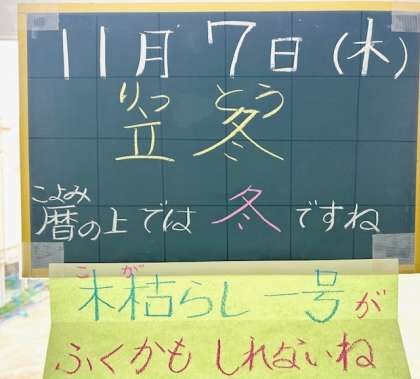 11月7日(木)
りっとう
立冬
こよみ
暦の上では冬ですね
こが
木枯らし一号が
ふくかもしれないね